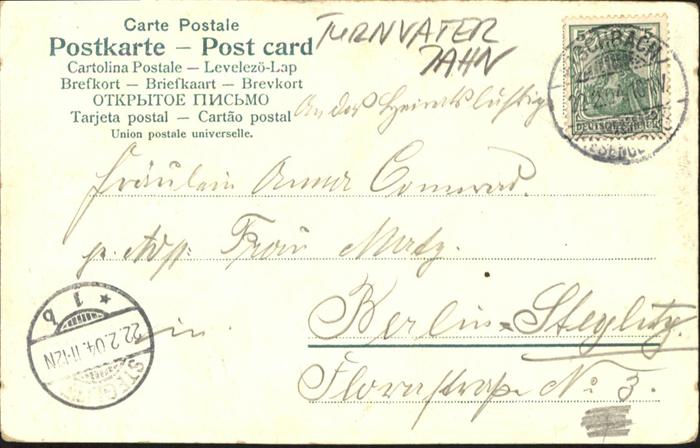 Carte Postale
Postkarte – Post card
Cartolina Postale – Levelező-Lap
Brefkort – Briefkaart – Brevkort
ОТКРЫТОЕ ПИСЬМО
Tarjeta postal – Cartão postal
Union postale universelle.
TURNVATER
JAHN
An der Heirats
5 5
DEUTSCHES REICH
22.2.04
Fräulein Anna Conrad.
p. Adr. Frau Matz.
in. Berlin-Steglitz.
Florastraße No 3.
* 1 b
22.2.04. 11-12N
STEGLITZ